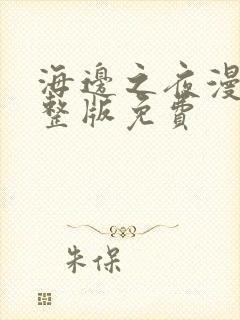 海邊之夜漫
整版免費
朱保